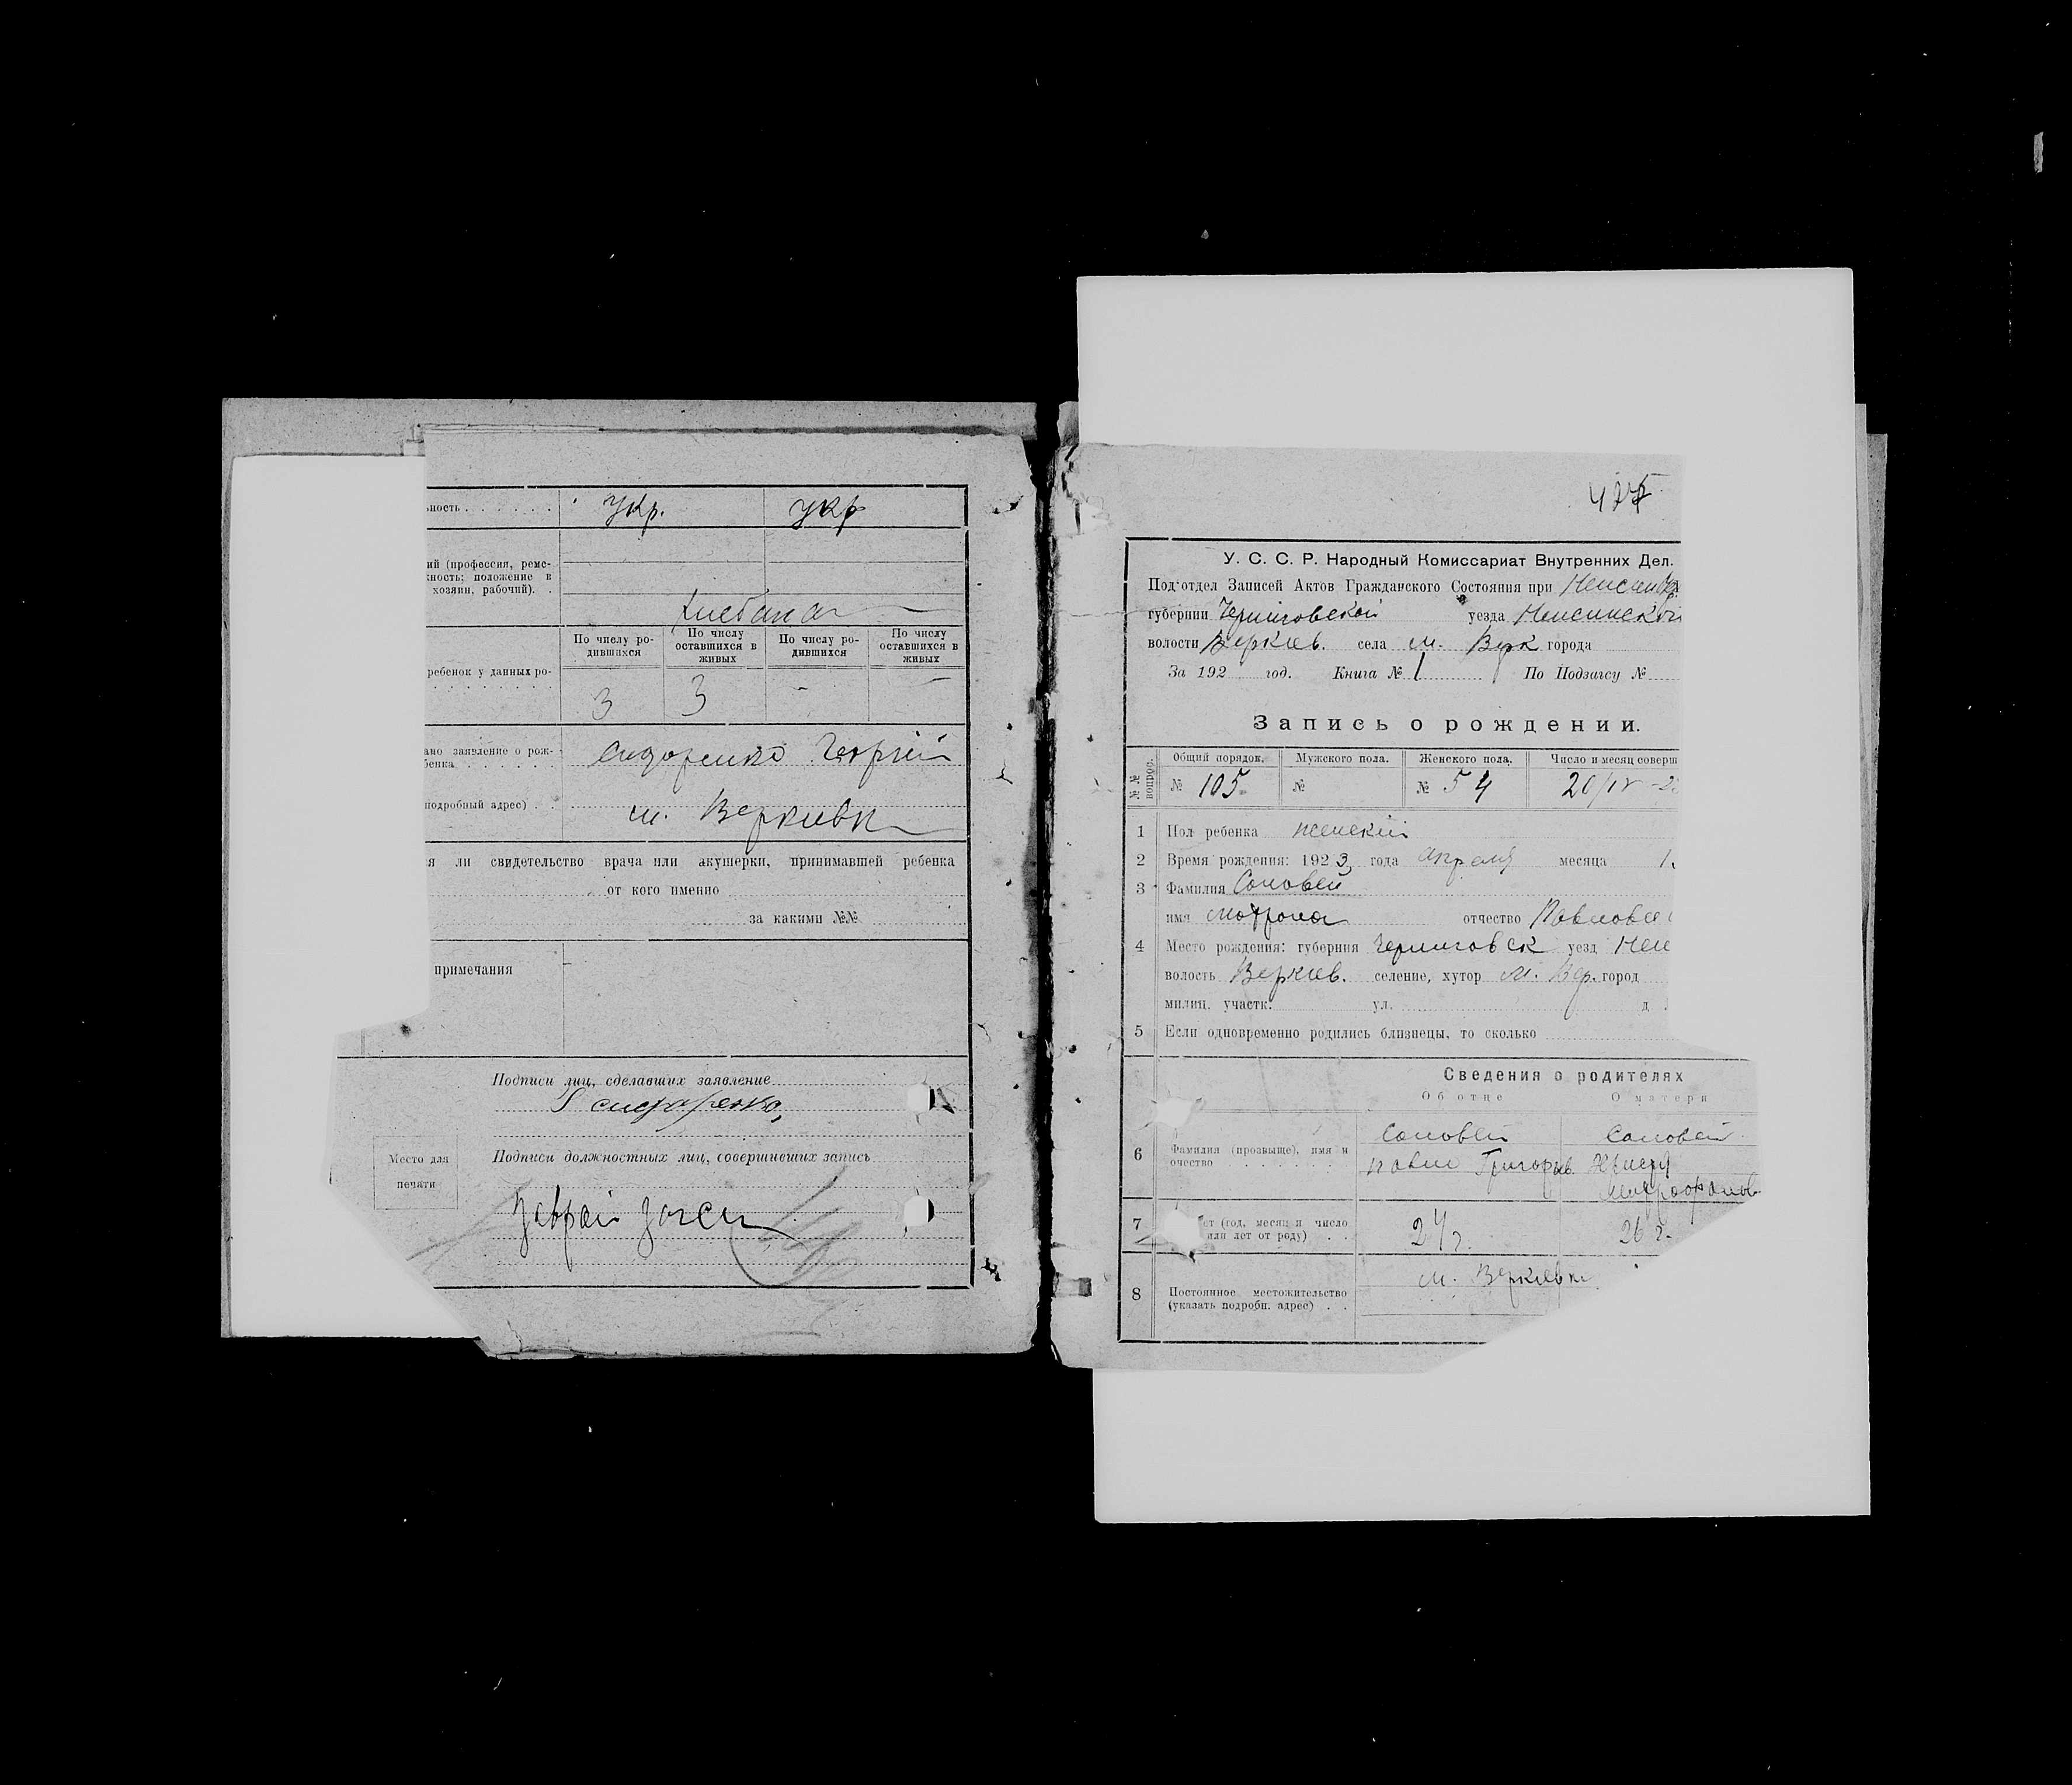 ьность . . . . . . Укр. укр
ий (профессия, реме-
ность; положение в
хозяин, рабочий). .
По числу ро-
дившихся
По числу
оставшихся в
живых
По числу ро-
дившихся
По числу
оставшихся в
живых
ребенок у данных ро-
3 3 - -
ано заявление о рож-
бенка . . . . . . Сидоренко Георгий
подробный адрес) . . м. Веркиевк
я ли свидетельство врача или акушерки, принимавшей ребенка
от кого именно
за какими №№
примечания
Подписи лиц, сделавших заявление
Г Сидоренко
Место для
печати
Подписи должностных лиц, совершивших запись
У. С. С. Р. Народный Комиссариат Внутренних Дел.
Под'отдел Записей Актов Гражданского Состояния при
губернии Черниговской уезда Неженской
волости Веркиев. села м. Верк города
За 192 год. Книга № 1 По Подзагсу №
Запись о рождении.
№№
вопрос.
Общий порядок. Мужского пола. Женского пола. Число и месяц соверш
№ 105 № № 54 20/IV - 2
1 Пол ребенка женский
2 Время рождения: 1923 года апреля месяца 1
3 Фамилия Соловей
имя Мотрона отчество Павловн
4 Место рождения: губерния Черниговск уезд Неж
волость Веркиев. селение, хутор м. Вер. город
милиц. участк. ул. д.
5 Если одновременно родились близнецы, то сколько
Сведения о родителях
Об отце О матери
6 Фамилия (прозвище), имя и
очество . . . . . .
Соловей Соловей
Павел Григорьев.
7 ет (год, месяц и число
или лет от роду) . . 24 г. 26 г.
8 Постоянное местожительство
(указать подробн. адрес) . .
м. Веркиевк